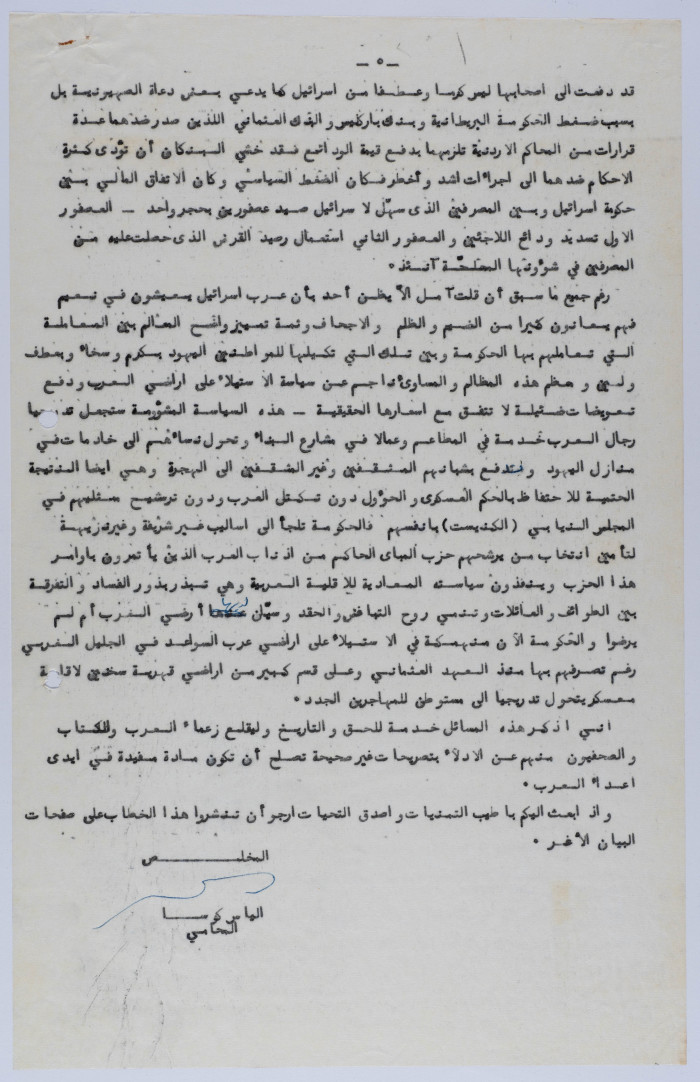 — ٥ —
قد دفعت الى اصحابها ليس كرما وعطفا من اسرائيل كما يدعي بعض دعاة الصهيونية بل
بسبب ضغط الحكومة البريطانية وبنك باركليس والبنك العثماني اللذين صدر ضدهما عدة
قرارات من المحاكم الاردنية تلزمهما بدفع قيمة الودائع فقد خشي البنكان أن تؤدى كثرة
الاحكام ضدهما الى اجراءات اشد وأخطر فكان الضغط السياسي وكان الاتفاق المالي بين
حكومة اسرائيل وبين المصرفين الذى سهّل لاسرائيل صيد عصفورين بحجر واحد — العصفور
الاول تسديد ودائع اللاجئين والعصفور الثاني استعمال رصيد القرض الذى حصلت عليه من
المصرفين في شؤونها المصلحّة آنئذ .
رغم جميع ما سبق أن قلت آمل الاّ يظن أحد بأن عرب اسرائيل يعيشون في نعيم
فهم يعانون كثيرا من الضيم والظلم والاجحاف وثمة تمييز واضح المعالم بين المعاملة
التي تعاملهم بها الحكومة وبين تلك التي تكيلها للمواطنين اليهود بكرم وسخاء وبعطف
ولين ومعظم هذه المظالم والمساوئ ناجم عن سياسة الاستيلاء على اراضي العرب ودفع
تعويضات ضئيلة لا تتفق مع اسعارها الحقيقية — هذه السياسة المشؤومة ستجعل تدريجيا
رجال العرب خدمة في المطاعم وعمالا في مشارع البناء وتحول نساءهم الى خادمات في
منازل اليهود وتدفع بشبانهم المثقفين وغير المثقفين الى الهجرة وهي ايضا النتيجة
الحتمية للاحتفاظ بالحكم العسكرى والحؤول دون تكتل العرب ودون ترشيح ممثليهم في
المجلس النيابي (الكنيست) بانفسهم فالحكومة تلجأ الى اساليب غير شريفة وغير نزيهة
لتأمين انتخاب من يرشحهم حزب المباى الحاكم من اذناب العرب الذين يأتمرون باوامر
هذا الحزب وينفذون سياسته المعادية للاقلية العربية وهي تبذر بذور الفساد والتفرقة
بين الطوائف والعائلات وتنمي روح التباغض والحقد وسيّان لديها أرضي العرب أم لم
يرضوا والحكومة الآن منهمكة في الاستيلاء على اراضي عرب السواعد في الجليل الغربي
رغم تصرفهم بها منذ العهد العثماني وعلى قسم كبير من اراضي قرية سخنين لاقامة
معسكر يتحول تدريجيا الى مستوطن للمهاجرين الجدد .
انني اذكر هذه المسائل خدمة للحق والتاريخ وليقلع زعماء العرب والكتاب
والصحفيون منهم عن الادلاء بتصريحات غير صحيحة تصلح أن تكون مادة مفيدة في ايدى
اعداء العرب .
واذ ابعث اليكم باطيب التمنيات واصدق التحيات ارجو أن تنشروا هذا الخطاب على صفحات
البيان الأغر .
المخلص
الياس كوسا
المحامي